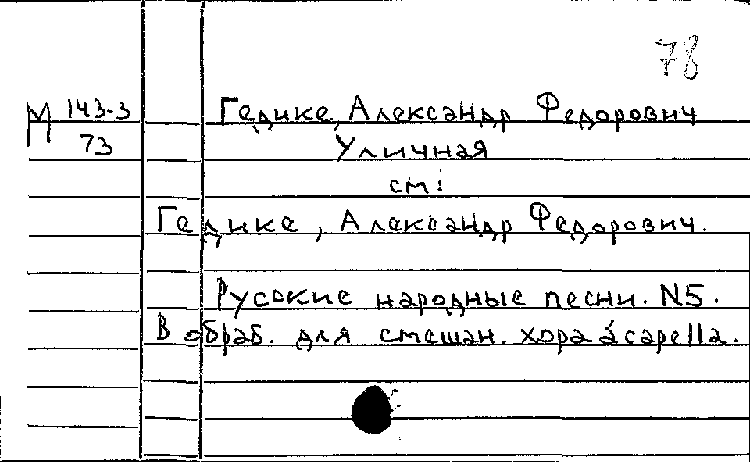 78
М 143-3
73
Гедике, Александр Федорович
Уличная
см:
Гедике, Александр Федорович.
Русские народные песни. N5.
В обраб. для смешан. хора a capella.